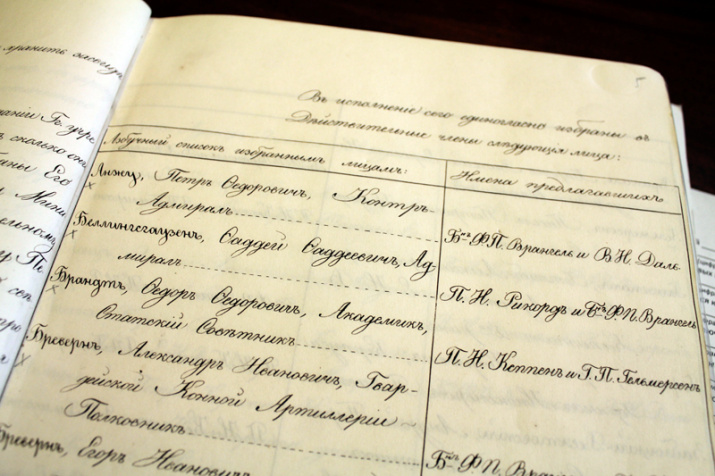 хранить
Въ исполненіе сего единогласно избраны въ
Дѣйствительные члены слѣдующія лица:
Азбучный списокъ избраннымъ лицамъ:
Имена предлагавшихъ
Анжу, Петръ Ѳедоровичъ, Контръ-
Адмиралъ
Бнъ Ф.П. Врангель и В.И. Даль
Беллинсгаузенъ, Ѳаддей Ѳаддеевичъ, Ад-
миралъ
П. И. Рикордъ и Бнъ Ф.П. Врангель
Брандтъ, Ѳедоръ Ѳедоровичъ, Академикъ,
Статскій Совѣтникъ
П. И. Кеппенъ и Г. П. Гельмерсенъ
Бревернъ, Александръ Ивановичъ, Гвар-
дейской Конной Артиллеріи
Полковникъ
Бревернъ, Егоръ Ивановичъ
Бнъ Ф.П. Вранг